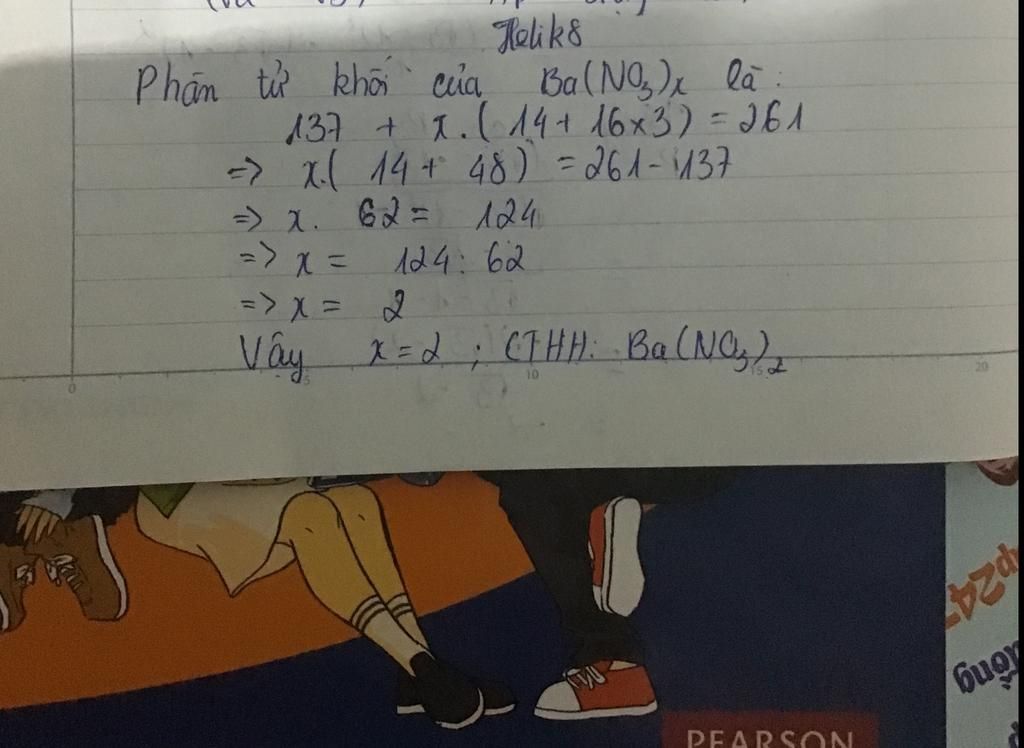 Helik8
Phân tử khối của Ba(NO₃)x là:
137 + x.( 14 + 16×3) = 261
=> x.( 14 + 48) = 261 - 137
=> x. 62 = 124
=> x = 124 : 62
=> x = 2
Vậy x = 2 ; CTHH: Ba(NO₃)₂
0 5 10 15 20
p247
đồng
PEARSON